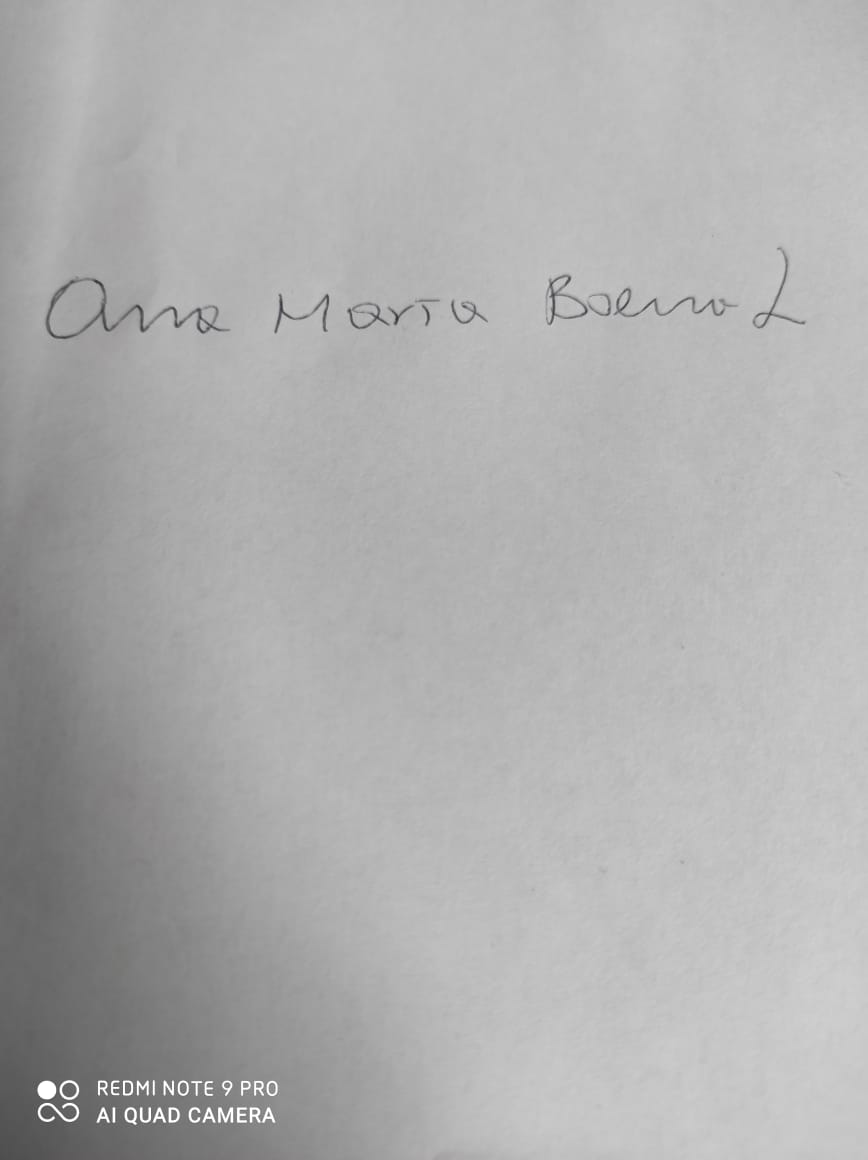 Ana Maria Baena L
REDMI NOTE 9 PRO
AI QUAD CAMERA